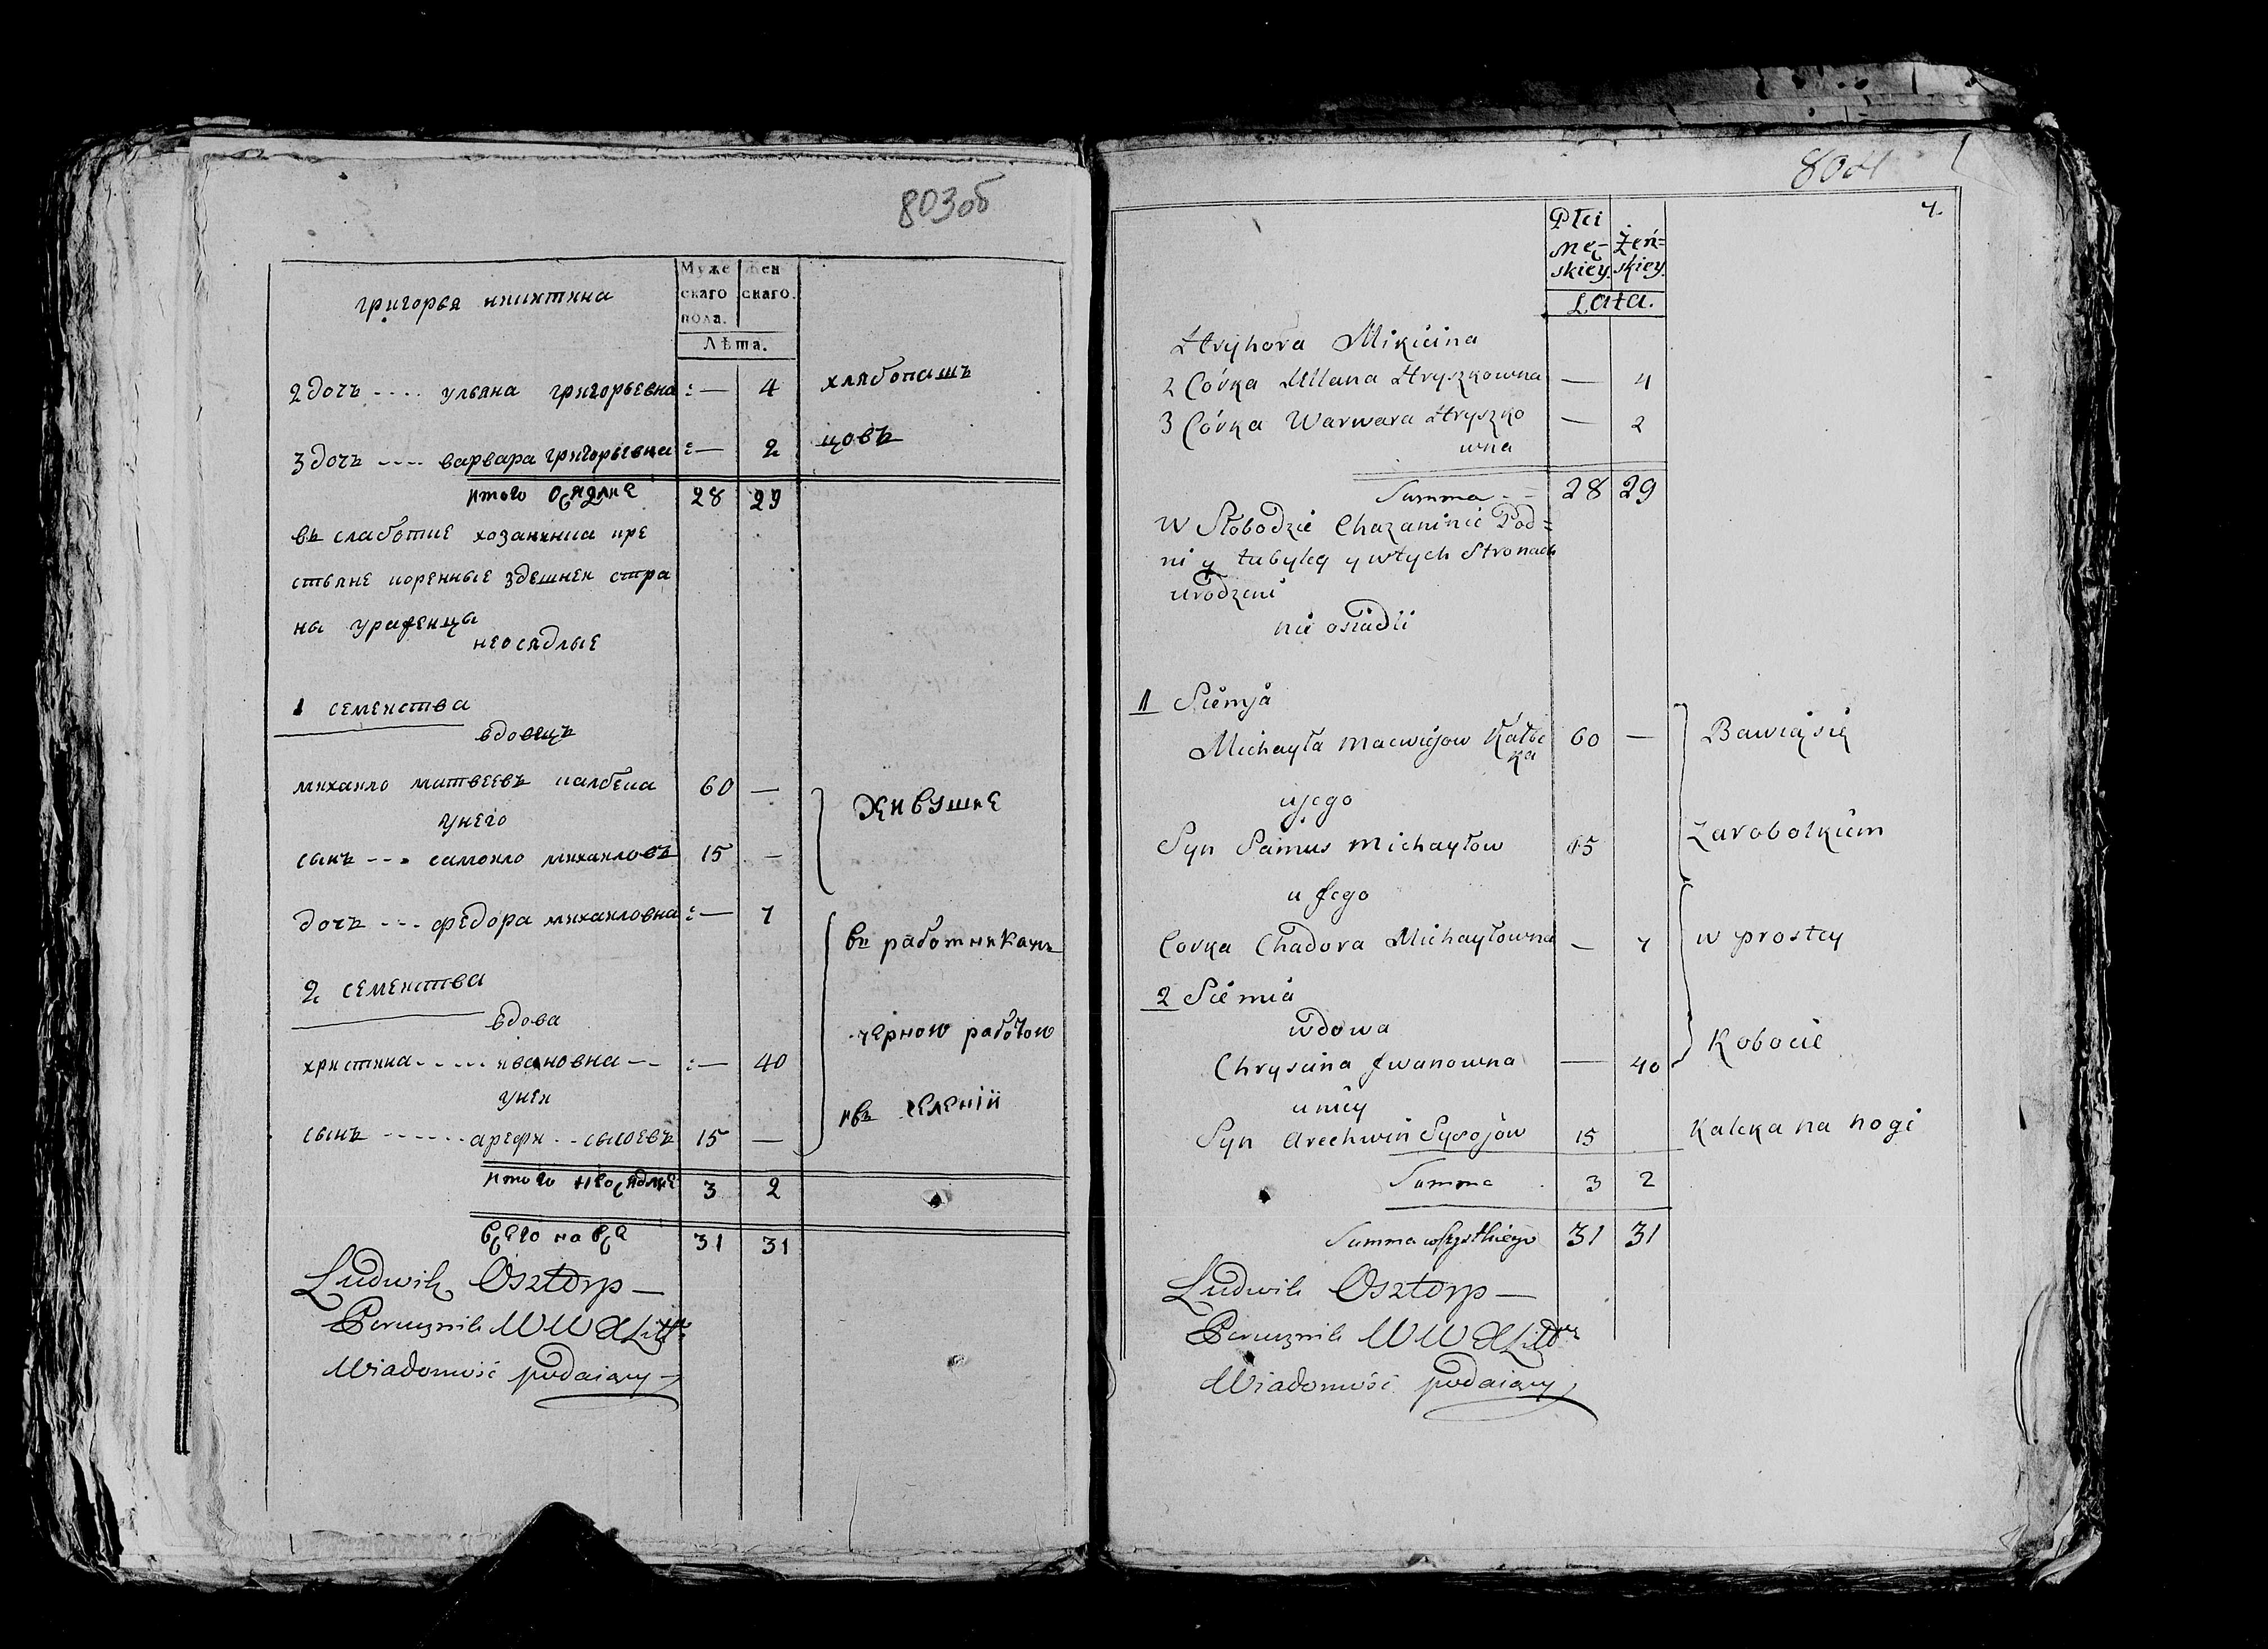 803об
Муже
скаго
пола.
Жен
скаго.
Лѣта.
григорья никитина
2 дочъ .... ульяна григорьевна :— 4 хлябопашъ
3 дочъ .... варвара григорьевна :— 2 цовъ
итого осядлие 28 29
въ слаботие хозанкина кре
стьяне коренные здешнеи стра
на ураженцы
неосядлые
1 семеиства
вдовецъ
михаило матвеевъ калбека 60 —
унего
Живущие
сынъ --- самоило михаиловъ 15 —
дочъ --- федора михаиловна :— 7
въ работникахъ
2 семеиства
вдова
черною работою
христина ..... ивановна -- :— 40
унеи
ивъ селенiи
сынъ ...... арефи .. сысоевъ 15 —
итого неосядлие 3 2
всего на все 31 31
Ludwik Osztorp —
Porucznik W W X Litt
Wiadomość podaiący
804
7.
Płci
Mę-
skiey.
Żeń=
skiey.
Lata.
Hryhora Mikicina
2 Córka Ullana Hryszkowna — 4
3 Córka Warwara Hryszko — 2
wna
Summa -- 28 29
W Słobodzie Chazaninie Pod=
ni y tubylcy y wtych Stronach
urodzeni
nie osiadli
1 Siemja
Michayła Macwiejow Kałbe 60 — Bawią się
ka
ujego
Syn Samus Michayłow 15 Zarobotkiem
u Jego
Corka Chadora Michayłowna — 7 w prostey
2 Siemia
wdowa
Robocie
Chryscina Jwanowna — 40
u niey
Syn Arechwiń Sysojow 15 Kaleka na nogi
Summa 3 2
Summa wszystkiego 31 31
Ludwik Osztorp —
Porucznik W W X Litt
Wiadomość podaiący